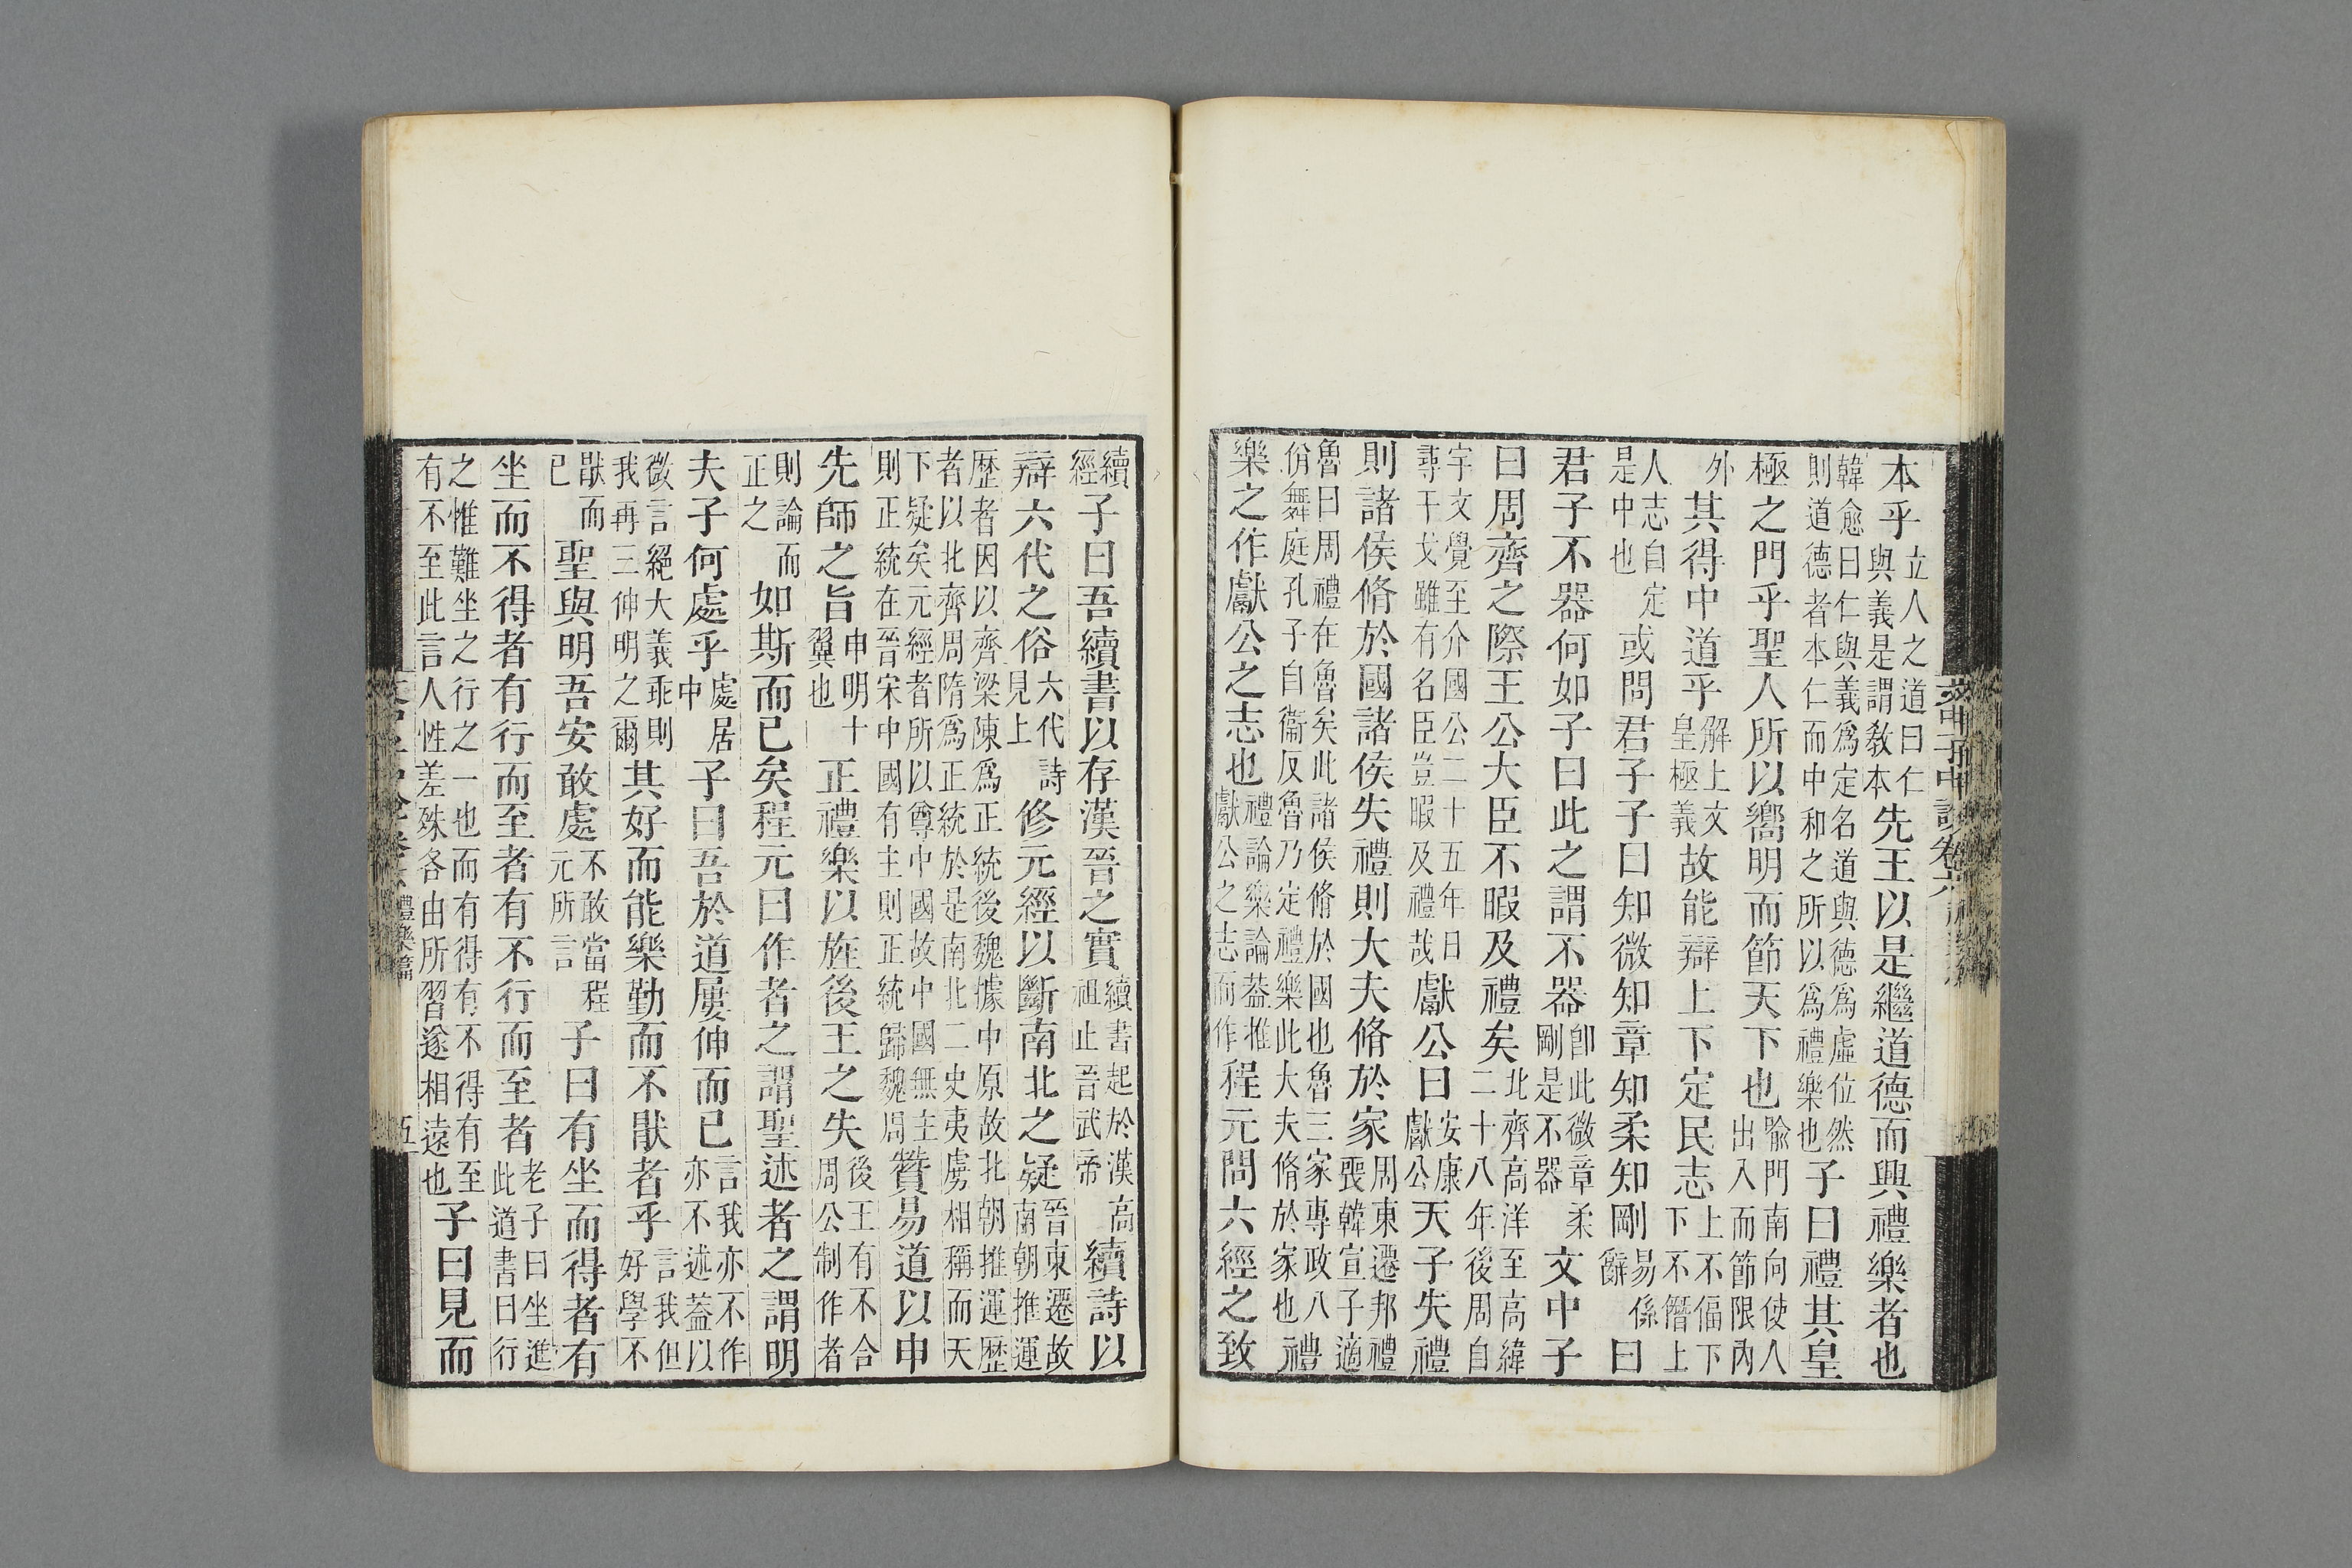 本乎立人之道曰仁與義是謂敎本先王以是繼道德而興禮樂者也
韓愈曰仁與義爲定名道與德爲虛位然則道德者本仁而中和之所以爲禮樂也子曰禮其皇
極之門乎聖人所以嚮明而節天下也喻門南向使八出入而節限內
外其得中道乎解上文皇極義故能辯上下定民志上不偪下下不僭上
人志自定是中也或問君子子曰知微知章知柔知剛易係辭曰
君子不器何如子曰此之謂不器卽此微章柔剛是不器文中子
曰周齊之際王公大臣不暇及禮矣北齊高洋至高緯二十八年後周自
宇文覺至介國公二十五年日尋干戈雖有名臣豈暇及禮哉獻公曰安康獻公天子失禮
則諸侯脩於國諸侯失禮則大夫脩於家周東遷邦禮喪韓宣子適
魯曰周禮在魯矣此諸侯脩於國也魯三家專政八佾舞庭孔子自衞反魯乃定禮樂此大夫脩於家也禮
樂之作獻公之志也禮論樂論葢推獻公之志而作程元問六經之致
續經子曰吾續書以存漢晉之實續書起於漢高祖止晉武帝續詩以
辯六代之俗六代詩見上修元經以斷南北之疑晉東遷故南朝推運
歷者因以齊梁陳爲正統後魏據中原故北朝推運歷者以北齊周隋爲正統於是南北二史夷虜相稱而天
下疑矣元經者所以尊中國故中國無主則正統在晉宋中國有主則正統歸魏周贊易道以申
先師之旨申明十翼也正禮樂以旌後王之失後王有不合周公制作者
則論而正之如斯而已矣程元曰作者之謂聖述者之謂明
夫子何處乎處居中子曰吾於道屢伸而已言我亦不作亦不述葢以
微言絕大義乖則我再三伸明之爾其好而能樂勤而不猒者乎言我但好學不
猒而已聖與明吾安敢處不敢當程元所言子曰有坐而得者有
坐而不得者有行而至者有不行而至者老子曰坐進此道書曰行
之惟難坐之行之一也而有得有不得有至有不至此言人性差殊各由所習遂相遠也子曰見而
禮樂篇
五